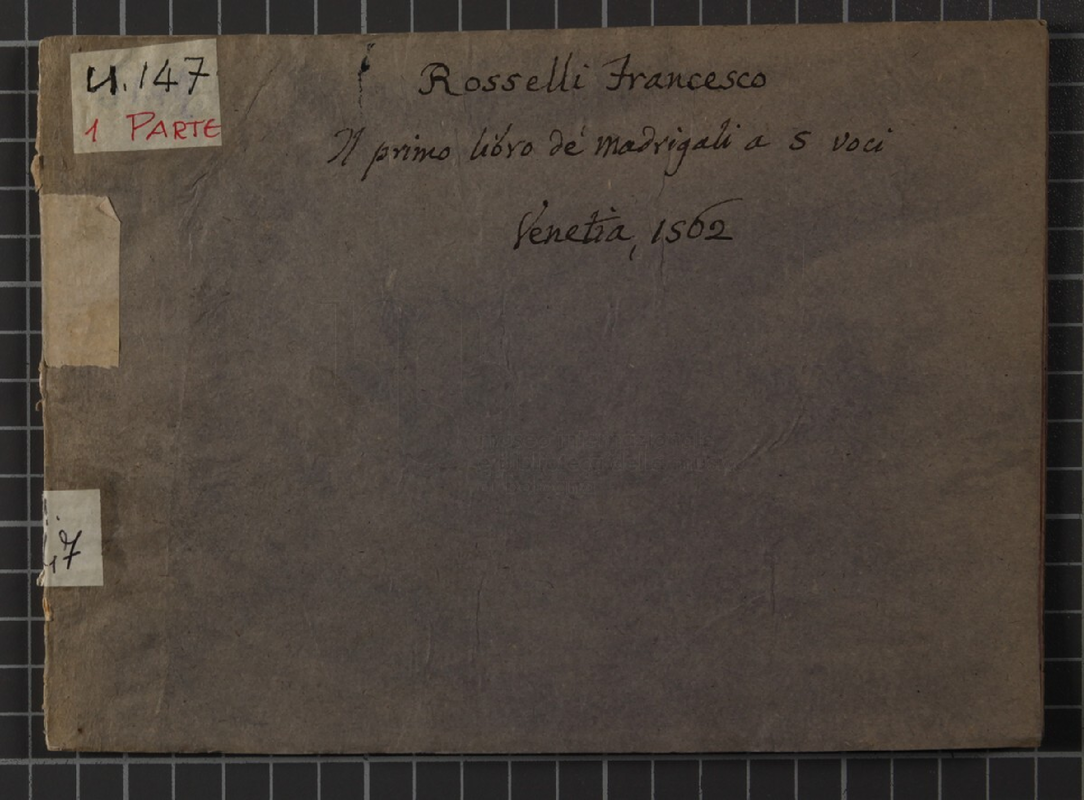 U.147
1 PARTE
Rosselli Francesco
Il primo libro de' madrigali a 5 voci
Venetia, 1562
47